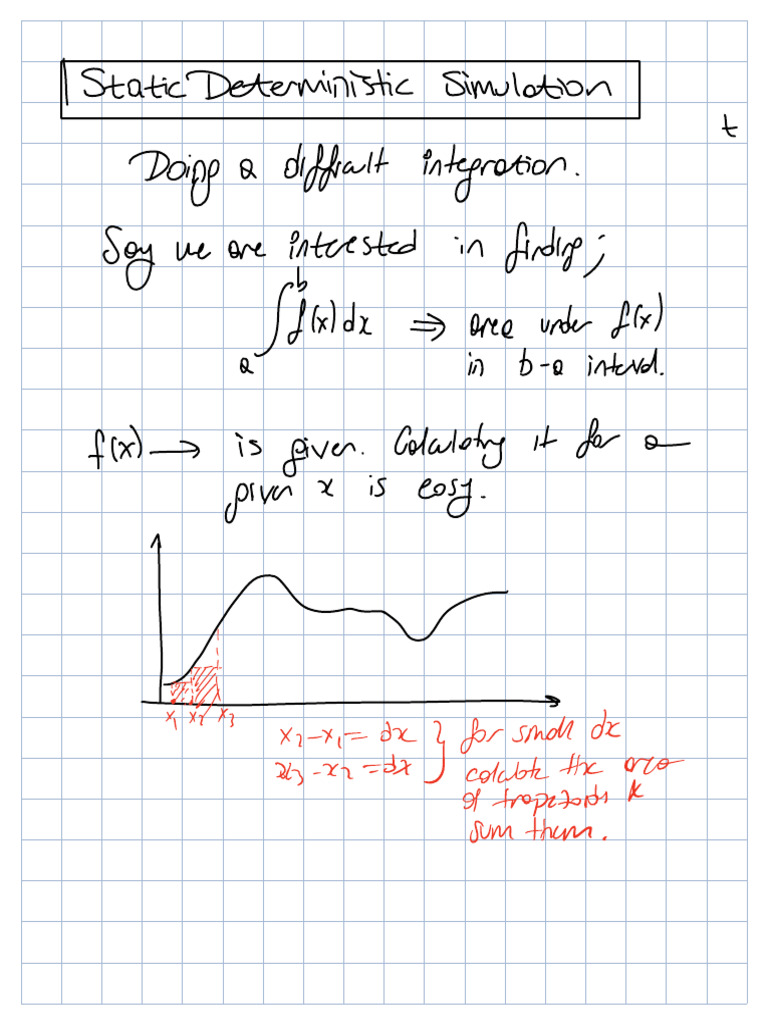 Static Deterministic Simulation
t
Doing a difficult integration.
Say we are interested in finding;
∫ₐᵇ f(x)dx ⇒ area under f(x)
in b-a interval.
f(x) → is given. Calculating it for a
given x is easy.
x₁ x₂ x₃
x₂-x₁=dx } for small dx
x₃-x₂=dx calculate the area
of trapezoids &
sum them.